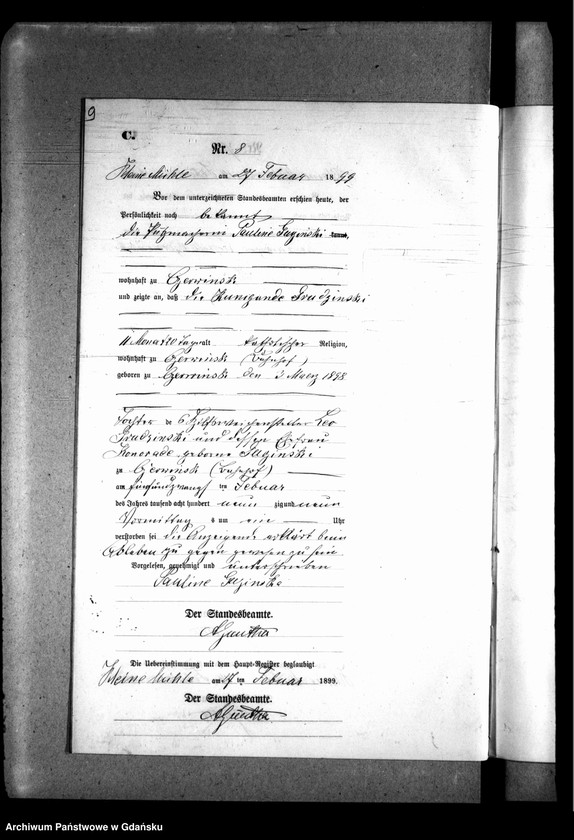 9
C.
Nr. 8
Kleine Mühle am 27 Februar 1899
Vor dem unterzeichneten Standesbeamten erschien heute, der
Persönlichkeit nach bekannt
die Putzmacherin Pauline
wohnhaft zu Czerwinsk
und zeigte an, daß die Kunigunde Grudzinski
11 Monat 20 Tage alt katholischer Religion,
wohnhaft zu Czerwinsk (Bahnhof)
geboren zu Czerwinsk den 3 Maerz 1898
Tochter des Hilfsweichenstellers Leo
Grudzinski und dessen Ehefrau
geborene
zu Czerwinsk (Bahnhof)
am fünfundzwanzigsten Februar
des Jahres tausend acht hundert neunzig und neun
Vormittag s um ein Uhr
verstorben sei die Anzeigende erklärt beim
Ableben zu gegen gewesen zu sein
Vorgelesen, genehmigt und unterschrieben
Pauline
Der Standesbeamte.
Die Uebereinstimmung mit dem Haupt-Register beglaubigt
Kleine Mühle am 27 ten Februar 1899.
Der Standesbeamte.
Archiwum Państwowe w Gdańsku